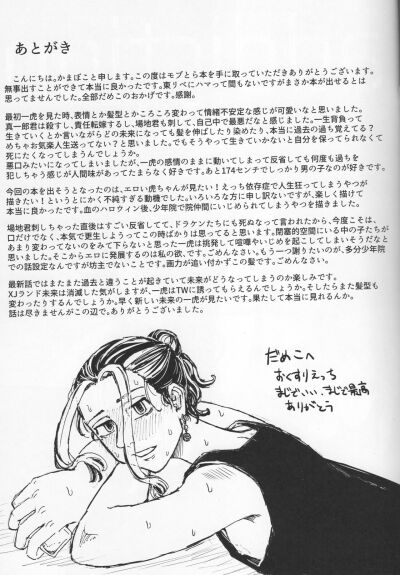 あとがき
こんにちは。かまぼこと申します。この度はモブとら本を手に取っていただきありがとうございます。
無事出すことができて本当に良かったです。東リベにハマって間もないですがまさか本が出せるとは
思ってませんでした。全部だめこのおかげです。感謝。
最初一虎を見た時、表情とか髪型とかころころ変わって情緒不安定な感じが可愛いなと思いました。
真一郎君は殺すし、責任転嫁するし、場地君も刺して、自己中で最悪だなと感じました。一生背負って
生きていくとか言いながらどの未来になっても髪を伸ばしたり染めたり、本当に過去の過ち覚えてる？
めちゃお気楽人生送ってない？と思いました。でもそうやって生きていかないと自分を保ってられなくて
死にたくなってしまうんでしょうか。
悪口みたいになってしまいましたが、一虎の感情のままに動いてしまって反省しても何度も過ちを
犯しちゃう感じが人間味があってたまらなく好きです。あと174センチでしっかり男の子なのが好きです。
今回の本を出そうとなったのは、エロい虎ちゃんが見たい！えっち依存症で人生狂ってしまうやつが
描きたい！というとにかく不純すぎる動機でした。いろいろな方に申し訳ないですが、楽しく描けて
本当に良かったです。血のハロウィン後、少年院で院仲間にいじめられてしまうやつを描きました。
場地君刺しちゃった直後はすごい反省してて、ドラケンたちにも死ぬなって言われたから、今度こそは、
口だけでなく、本気で更生しようってこの時ばかりは思ってると思います。閉塞的な空間にいる中の子たちが
あまり変わってないのをみて下らないと思った一虎は挑発して喧嘩やいじめを起こしてしまいそうだなと
思いました。そこからエロに発展するのは私の欲、です。ごめんなさい。もう一つ謝りたいのが、多分少年院
での話設定なんですが坊主でないことです。画力が追い付かずこの髪です。ごめんなさい。
最新話ではまたまた過去と違うことが起きていて未来がどうなってしまうのか楽しみです。
XJランド未来は消滅した気がしますが、一虎はTWに誘ってもらえるんでしょうか。そしたらまた髪型も
変わったりするんでしょうか。早く新しい未来の一虎が見たいです。果たして本当に見れるんか。
話は尽きませんがこの辺で。ありがとうございました。
だめこへ
おくすりえっち
まじでいい、まじで最高
ありがとう